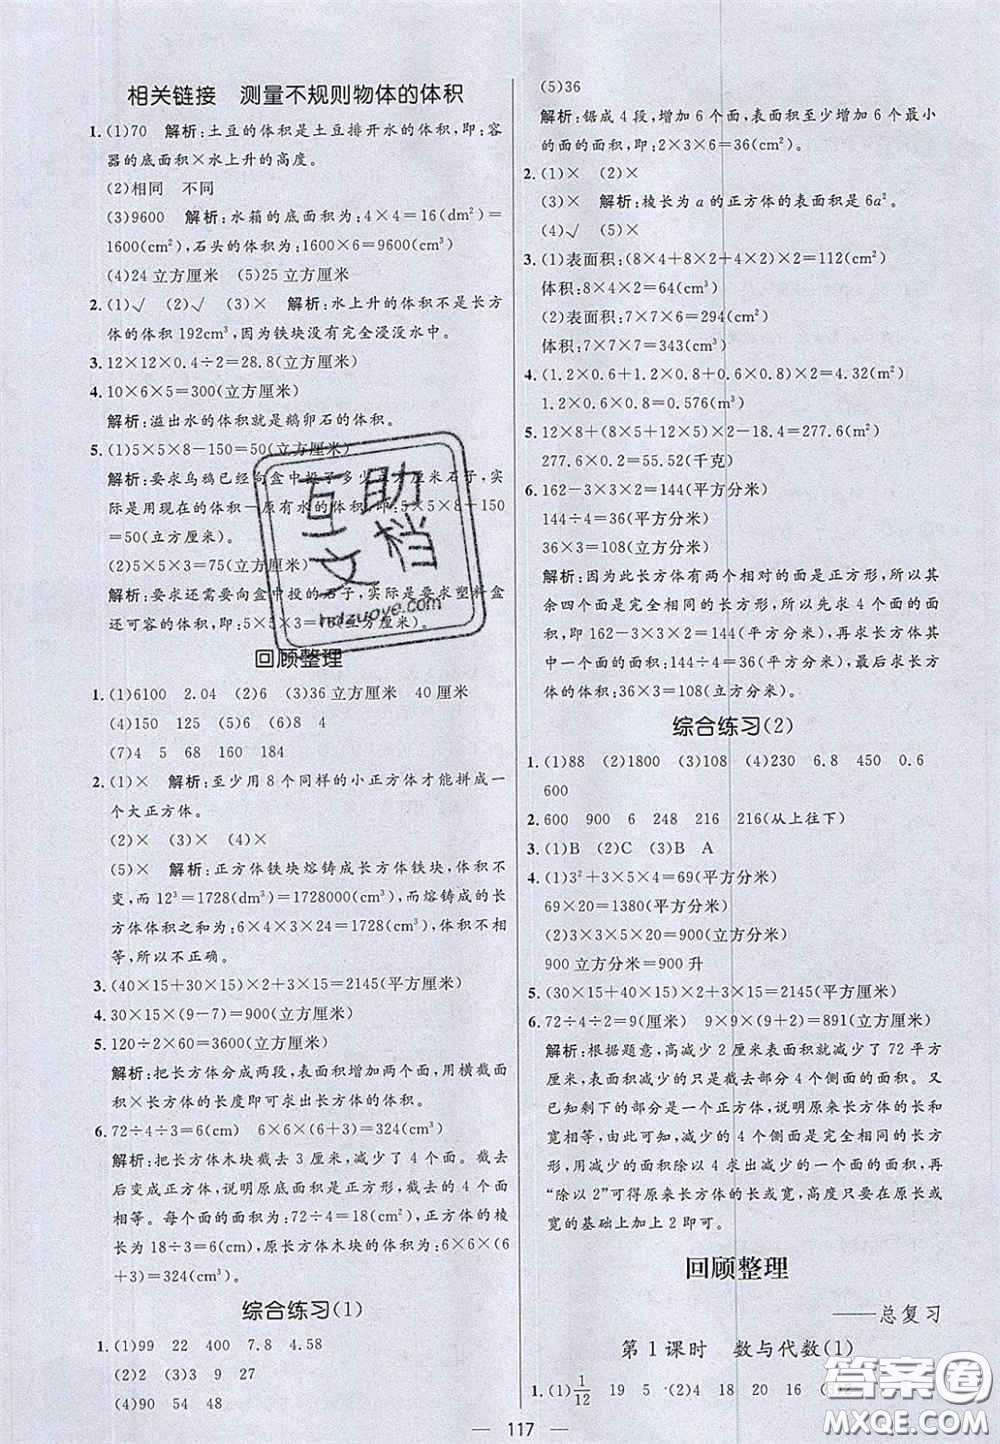 相关链接　测量不规则物体的体积
1. (1)70　解析:土豆的体积是土豆排开水的体积,即:容
器的底面积×水上升的高度。
(2)相同　不同
(3)9600　解析:水箱的底面积为:4×4=16(dm²)=
1600(cm²),石头的体积为:1600×6=9600(cm³)。
(4)24立方厘米　(5)25立方厘米
2. (1)√　(2)√　(3)×　解析:水上升的体积不是长方
体的体积192cm³,因为铁块没有完全浸没水中。
3. 12×12×0.4÷2=28.8(立方厘米)
4. 10×6×5=300(立方厘米)
解析:溢出水的体积就是鹅卵石的体积。
5. (1)5×5×8-150=50(立方厘米)
解析:要求乌鸦已经向盒中投了多少立方厘米石子,实
际是用现在的体积-原有水的体积,即:5×5×8-150
=50(立方厘米)。
(2)5×5×3=75(立方厘米)
解析:要求还需要向盒中投的石子,实际是要求塑料盒
还可容的体积,即:5×5×3=75(立方厘米)。
回顾整理
1. (1)6100　2.04　(2)6　(3)36立方厘米　40厘米
(4)150　125　(5)6　(6)8　4
(7)4　5　68　160　184
2. (1)×　解析:至少用8个同样的小正方体才能拼成一
个大正方体。
(2)×　(3)×　(4)×
(5)×　解析:正方体铁块熔铸成长方体铁块,体积不
变,而12³=1728(dm³)=1728000(cm³),而熔铸成的长
方体体积之和为:6×4×3×24=1728(cm³),体积不相
等,所以不正确。
3. (40×15+30×15)×2+3×15=2145(平方厘米)
4. 30×15×(9-7)=900(立方厘米)
5. 120÷2×60=3600(立方厘米)
解析:把长方体分成两段,表面积增加两个面,用横截面
积×长方体的长度即可求出长方体的体积。
6. 72÷4÷3=6(cm)　6×6×(6+3)=324(cm³)
解析:把长方体木块截去3厘米,减少了4个面。截去
后变成正方体,说明原底面积是正方形,截去的4个面
相等。每个面的面积为:72÷4=18(cm²),正方体的棱
长为18÷3=6(cm),原长方体木块的体积为:6×6×(6
+3)=324(cm³)。
综合练习(1)
1. (1)99　22　400　7.8　4.58
(2)22　(3)3　9　27
(4)90　54　48
(5)36
解析:锯成4段,增加6个面,表面积至少增加6个最小
的面的面积,即:2×3×6=36(cm²)。
2. (1)×　(2)×
(3)×　解析:棱长为a的正方体的表面积是6a²。
(4)√　(5)×
3. (1)表面积:(8×4+8×2+4×2)×2=112(cm²)
体积:8×4×2=64(cm³)
(2)表面积:7×7×6=294(cm²)
体积:7×7×7=343(cm³)
4. (1.2×0.6+1.2×0.8+0.6×0.8)×2=4.32(m²)
1.2×0.6×0.8=0.576(m³)
5. 12×8+(8×5+12×5)×2-18.4=277.6(m²)
277.6×0.2=55.52(千克)
6. 162-3×3×2=144(平方分米)
144÷4=36(平方分米)
36×3=108(立方分米)
解析:因为此长方体有两个相对的面是正方形,所以其
余四个面是完全相同的长方形,所以先求4个面的面
积,即162-3×3×2=144(平方分米),再求长方体其
中一个面的面积:144÷4=36(平方分米),最后求长方
体的体积:36×3=108(立方分米)。
综合练习(2)
1. (1)88　(2)1800　(3)5　(4)230　6.8　450　0.6
600
2. 600　900　6　248　216　216(从上往下)
3. (1)B　(2)C　(3)B　A
4. (1)3²+3×5×4=69(平方分米)
69×20=1380(平方分米)
(2)3×3×5×20=900(立方分米)
900立方分米=900升
5. (30×15+40×15)×2+3×15=2145(平方厘米)
6. 72÷4÷2=9(厘米)　9×9×(9+2)=891(立方厘米)
解析:根据题意,高减少2厘米表面积就减少了72平方
厘米,表面积减少的只是截去部分4个侧面的面积。又
已知剩下的部分是一个正方体,说明原来长方体的长和
宽相等,因此,减少的4个侧面是完全相同的长方
形,用减少的面积除以4求出减少的一个面的面积,再
“除以2”可得原来长方体的长或宽,高只要在原长或
宽的基础上加上2即可。
回顾整理
——总复习
第1课时　数与代数(1)
1. (1)1/12　19　5　(2)4　18　20　16　(3)2
117
互助
文档
hdzuoye.com
答案圈
MXQE.COM